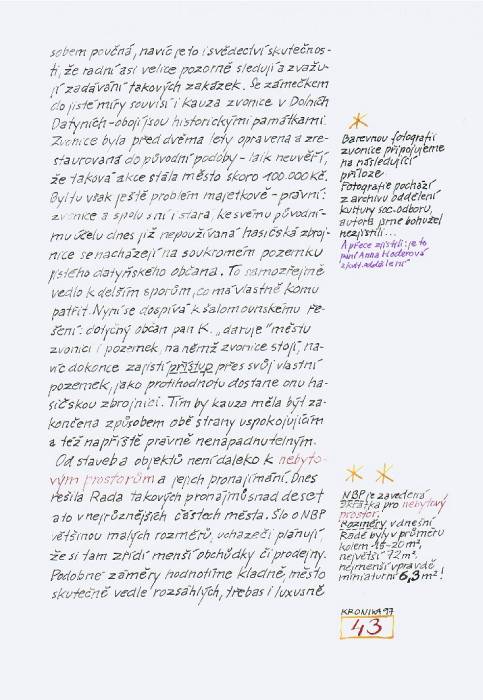 sobem poučná, navíc je to i svědectví skutečnos-
ti, že radní asi velice pozorně sledují a zvažu-
jí zadávání takových zakázek. Se zámečkem
do jisté míry souvisí i kauza zvonice v Dolních
Datyních - obojí jsou historickými památkami.
Zvonice byla před dvěma lety opravena a zre-
staurována do původní podoby - laik neuvěří,
že taková akce stála město skoro 100.000 Kč.
Byl tu však ještě problém majetkově - právní:
zvonice a spolu s ní i stará, ke svému původní-
mu účelu dnes již nepoužívaná hasičská zbroj-
nice se nacházejí na soukromém pozemku
jistého datyňského občana. To samozřejmě
vedlo k delším sporům, co má vlastně komu
patřit. Nyní se dospívá k šalomounskému ře-
šení: dotyčný občan pan K. „daruje" městu
zvonici i pozemek, na němž zvonice stojí, na-
víc dokonce zajistí přístup přes svůj vlastní
pozemek, jako protihodnotu dostane onu ha-
sičskou zbrojnici. Tím by kauza měla být za-
končena způsobem obě strany uspokojujícím
a též napříště právně nenapadnutelným.
Od staveb a objektů není daleko k nebyto-
vým prostorům a jejich pronajímání. Dnes
řešila Rada takových pronájmů snad deset
a to v nejrůznějších částech města. Šlo o NBP
většinou malých rozměrů, uchazeči plánují,
že si tam zřídí menší obchůdky či prodejny.
Podobné záměry hodnotíme kladně, město
skutečně vedle rozsáhlých, třebas i luxusně
Barevnou fotografii
zvonice připojujeme
na následující
příloze
Fotografie pochází
z archivu oddělení
kultury soc. odboru,
autora jsme bohužel
nezjistili...
A přece zjistili: je to
paní Anna
NBP je zavedená
zkratka pro nebytový
prostor.
Rozměry v dnešní
Radě byly v průměru
kolem 15-20 m²,
největší 72 m²,
nejmenší vpravdě
miniaturní 6,3 m²!
KRONIKA 97
43